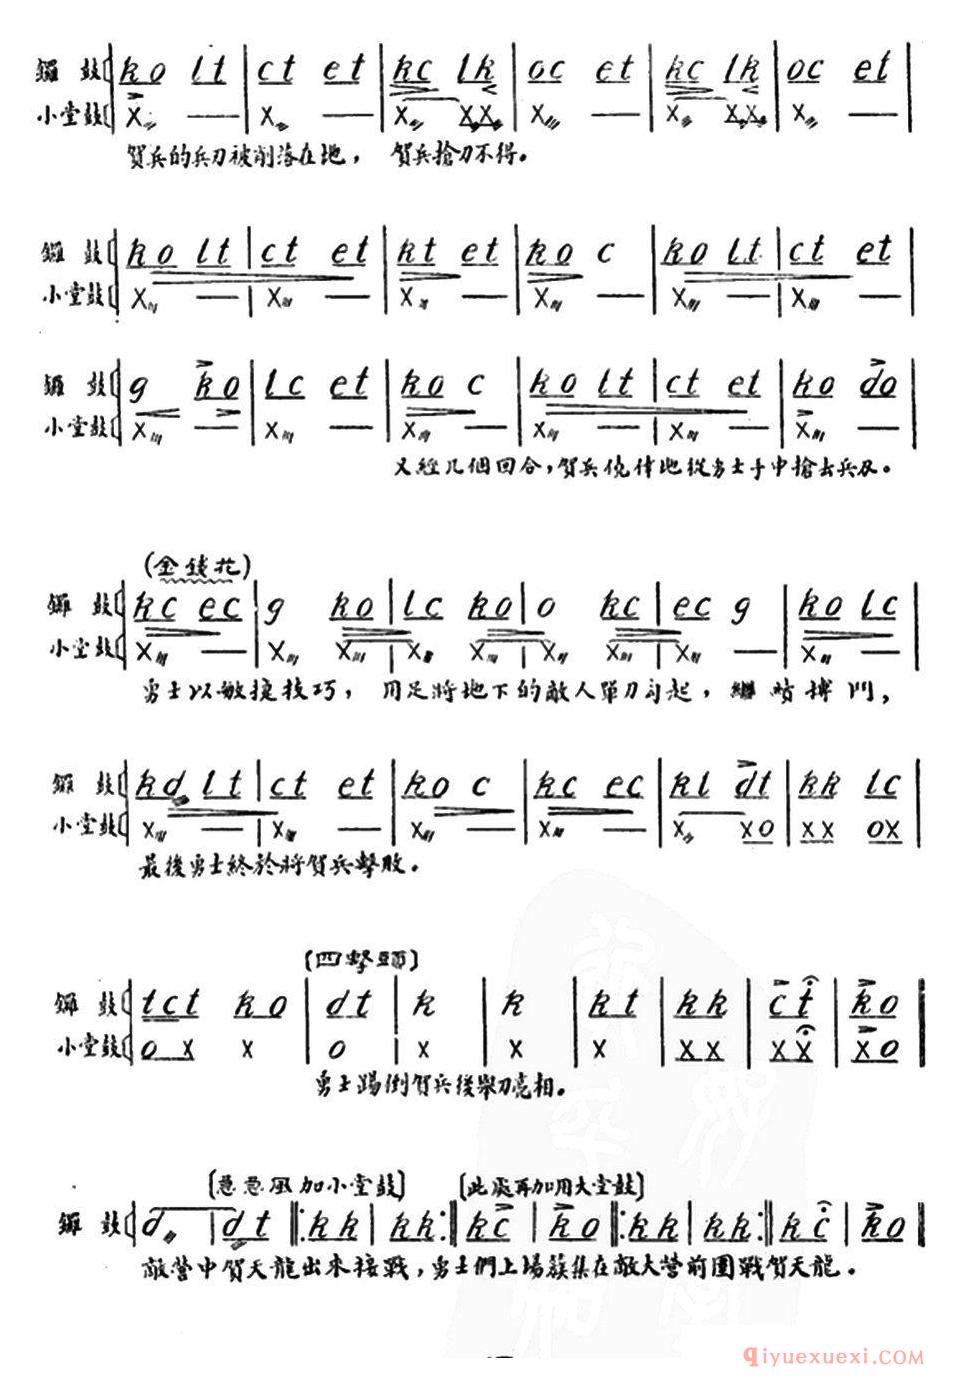 鑼鼓 ko lt | ct et | kc lk | oc et | kc lk | oc et |
小堂鼓 X — | X — | X XX | X — | X XX | X — |
賀兵的兵刃被削落在地， 賀兵搶刀不得。
鑼鼓 ko lt | ct et | kt et | ko c | ko lt | ct et |
小堂鼓 X — | X — | X — | X — | X — | X — |
鑼鼓 g ko | lc et | ko c | ko lt | ct et | ko do |
小堂鼓 X — | X — | X — | X — | X — | X — |
又經几個回合，賀兵僥倖地從勇士手中搶去兵刃。
(金錢花)
鑼鼓 kc ec | g ko | lc ko | o kc | ec g | ko lc |
小堂鼓 X — | X X | X X | X X | X — | X — |
勇士以敏捷技巧， 用足將地下的敵人單刀勾起， 繼續搏鬥，
鑼鼓 kd lt | ct et | ko c | kc ec | kl dt | kk lc |
小堂鼓 X — | X — | X — | X — | X XO | XX OX |
最後勇士終於將賀兵擊敗。
〔四擊頭〕
鑼鼓 tct ko | dt | k | k | kt | kk | ct | ko
小堂鼓 O X X | O | X | X | X | XX | XX | XO
勇士踢倒賀兵後舉刀亮相。
〔急急風加小堂鼓〕 〔此處再加用大堂鼓〕
鑼鼓 d | dt ‖: kk | kk :‖ kc | ko ‖: kk | kk :‖ kc | ko
敵營中賀天龍出來接戰，勇士們上場簇集在敵大營前圍戰賀天龍。
qiyuexuexi.com